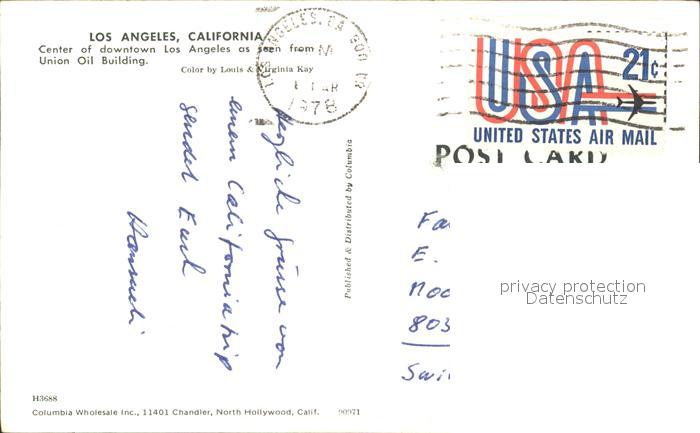 LOS ANGELES, CALIFORNIA
Center of downtown Los Angeles as seen from
Union Oil Building.
Color by Louis & Virginia Kay
LOS ANGELES, CA 900
1978
USA 21c
UNITED STATES AIR MAIL
POST CARD
Herzliche Grüsse von
einem Californiatrip
sendet Euch
Published & Distributed by Columbia
Fa
E.
Moo
803
Swi
privacy protection
Datenschutz
H3688
Columbia Wholesale Inc., 11401 Chandler, North Hollywood, Calif. 90971